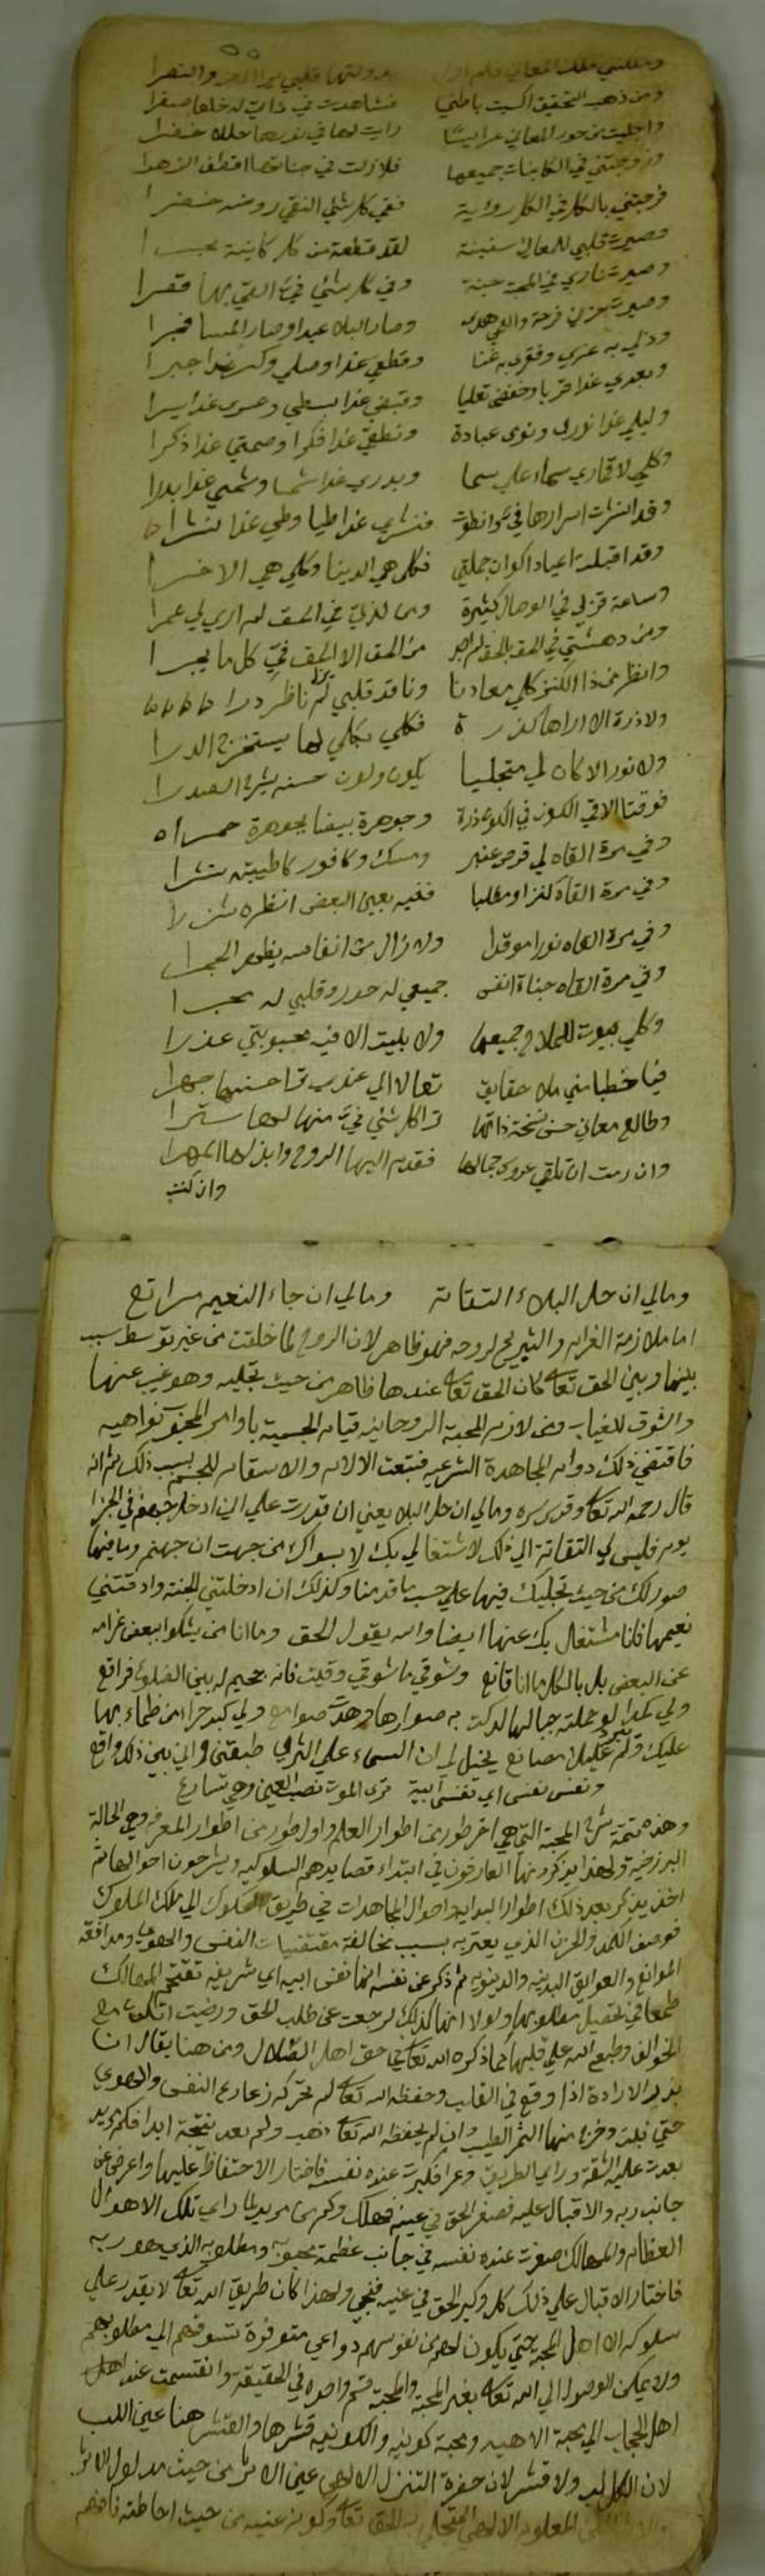 ومن ذهب التحقيق اكسيت باطني فشاهدت في ذاتي له خلعا صفرا
واجليت من حور المعاني عرايسا رايت لها في نورها حللا خضرا
وزوجتني في الكاينات جميعها فلازلت في جناتها اقطف الزهرا
فرجتني بالكل في الكل روية ففي كل شئ التقي روضه خضرا
وصيرت قلبي للمعاني سفينة لقد قطعت من كل كاينة بحرا
وصيرت ناري في المحبة جنة وفي كل شئ في التقي بها قصرا
وصيرت حزني فرحة والفي هدى وصار البلا عيدا وصار المسا فجرا
وذلي به عزي وفقري به غنا وقطعي غدا وصلي وكسري غدا جبرا
وبعدي غدا قربا وخفضي تعليا وقبضي غدا بسطي وعسري غدا يسرا
وليلي غدا نوري ونومي عبادة ونطقي غدا فكرا وصمتي غدا ذكرا
وكلي لاقماري سماء علي سما وبدري غدا شمسا وشمسي غدا بدرا
وقد انشرت اسرارها في وانطوت فنشري غدا طيا وطي غدا نشرا
وقد اقبلت اعياد اكوان جملتي فكلي هي الدنيا وكلي هي الاخرا
وساعة قربي في الوصال كثيرة ومن لذتي في الحق لم ادري لي عمرا
ومن دهشتي في الحق بالحق لم اجد من الحق الا الحق في كل ما يجرا
وانظر من ذا الكنز كلي معادنا وناقد قلبي ناظر دررا
ولا ذرة الا اراها كدرة فكلي بكلي لها يستخرج الدرا
ولا نور الا كان لي متجليا بكون ولون حسنه يشرح الصدرا
فوقتا الاقي الكون في الكون ذرة وجوهرة بيضا بجوهرة حمرا
وفي مرة القاه لي قرص عنبر ومسك وكافور كاطيبته نشرا
وفي مرة القاه كنزا ومطلبا ففيه بعين البعض انظره شزرا
وفي مرة القاه نورا موقدا ولا زال من انفاسه يظهر الجمرا
وفي مرة القاه جناة انفس جميعي له حور وقلبي له بحرا
وكلي بيوت للملاح جميعها ولا بليت الا فيه محبوبتي عذرا
فيا خطبا مني ملا حقايق تعالا الي عندي ترا حسنها جهرا
وطالع معاني حسن نسخة ذاتها ترا كل شئ في منها لها سترا
وان رمت ان تلقي عروس جمالها فقدم اليها الروح وابذل لها المهرا
وان كنت
ومالي ان حل البلاء التفاتة ومالي ان جاء النعيم مراتع
اما ملازمة الغرام والتبريح لروحه فهو ظاهر لان الروح لما خلقت من غير توسط سبب
بينها وبين الحق تعا كان الحق تعا عندها ظاهر من حيث تجليه وهو غيب عنها
والشوق للغياب ومن لازم المحبة الروحانيه قيام الجسمية باوامر المحبوب ونواهيه
فاقتضي ذلك دوام المجاهدة الشرعيه فتبعت الالام والاسقام للجسم بسبب ذلك ثم انه
قال رحمه الله تعا وقدس سره ومالي ان حل البلا يعني ان قدرت علي اني ادخل جهنم في الجزا
يوم فليس لي التفاتة الي ذلك لاشتغالي بك لا بسواك من جهت ان جهنم وما فيها
صور لك من حيث تجليك فيها علي حسب ما قدمنا وكذلك ان ادخلتني الجنة واذقتني
نعيمها فانا مشتغل بك عنها ايضا والله يقول الحق وما انا من يشكوا ببعض غرامه
عن البعض بل بالكل ما انا قانع وشوقي ما شوقي وقيت فانه جحيم له بين الضلوع فراقع
ولي كمد لو حملته جبالها لدكت به صوارها وهدت صوامع ولي كبد حراء من ظماء بها
عليك ولم يبرد غليل مصانع يخيل لي ان السماء علي الثري طبقتني واني بين ذلك واقع
ونفس نفس اي نفس ابية تري الموت نصب العين وهي تسارع
وهذه تتمة شرح المحبة التي هي اخر طور من اطوار العلم واول طور من اطوار المعرفة وهي الحالة
البرزخية ولهذا يذكرونها العارفون في ابتداء قصايدهم السلوكيه ويشرحون احوالها ثم
اخذ يذكر بعد ذلك اطوار البداية واحوال المجاهدات في طريق السلوك الي ملك الملوك
فوصف الكمد والحزن الذي يعتريه بسبب مخالفة مقتضيات النفس والهوى ومدافعة
الموانع والعوايق البدنيه والدينويه ثم ذكر عن نفسه انها نفس ابيه اي شريفه تقتحم المهالك
طمعا في تحصيل مطلوبها ولولا انها كذلك لرجعت عن طلب الحق ورضيت ان تكون مع
الخوالف وطبع الله علي قلبها كما ذكره الله تعا في حق اهل الضلال ومن هنا يقال ان
بذر الارادة اذا وقع في القلب وحفظه الله تعا لم تحركه زعازع النفس والهوي
حتي نبت وخرج منها الثمر الطيب وان لم يحفظه الله تعا ذهب ولم يعد ينتجه ابدا فكم مريد
بعدت عليه الشقة وراي الطريق وعرا فكبرت عنده نفسه فاختار الاحتفاظ عليها واعرض عن
جانب ربه والاقبال عليه فصغر الحق في عينه فهلك وكم من مريد لما راي تلك الاهوال
العظام والمهالك صغرت عنده نفسه في جانب عظمة محبوبه ومطلوبه الذي هو ربه
فاختار الاقبال علي ذلك كله وكبر الحق في عينه فنجي ولهذا كان طريق الله تعا لا يقدر علي
سلوكه الا اهل المحبة حتي يكون لهم من نفوسهم دواعي متوفرة تسوقهم الي مطلوبهم
ولا يمكن الوصول الي الله تعا بغير المحبة والمحبة قسم واحد في الحقيقة وانقسمت عند اهل
اهل الحجاب الي محبة الاهيه ومحبة كونيه والكونيه قشرها والقشر هنا عين اللب
لان الكل لب ولا قشر لان حضرة التنزل الالهي عين الاثر من حيث مدلول الاثر
المعلوم الالهي المتجلي به الحق تعا وكونه غيره من حيث احاطته فافهم